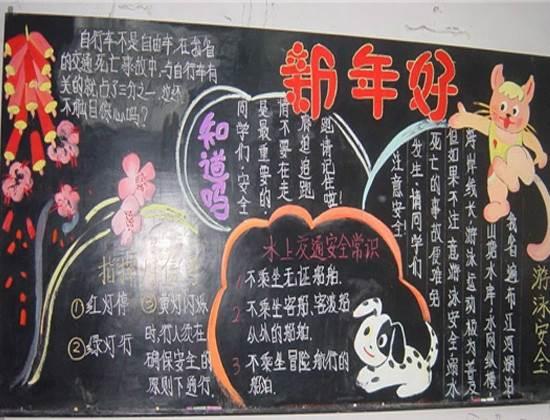 新年好
自行车不是自由车,在我省
的交通死亡事故中,与自行车有
关的就占了三分之一,这还
不触目惊心吗?
知道吗
同学们,安全
是最重要的
请不要在走
廊追逐追跑
跑请记在啦!
水上交通安全常识
1 不乘坐无证船舶.
2 不乘坐客船、客渡船
以外的船舶.
3 不乘坐冒险航行的
船舶.
①红灯停
②绿灯行
③黄灯闪烁
时,行人须在
确保安全的
原则下通行.
游泳安全
我省遍布江河湖泊
山塘水库,水网纵横
海岸线长,游泳运动极为普及
但如果不注意游泳安全,溺水
死亡的事故便难免
发生,请同学们
注意安全!